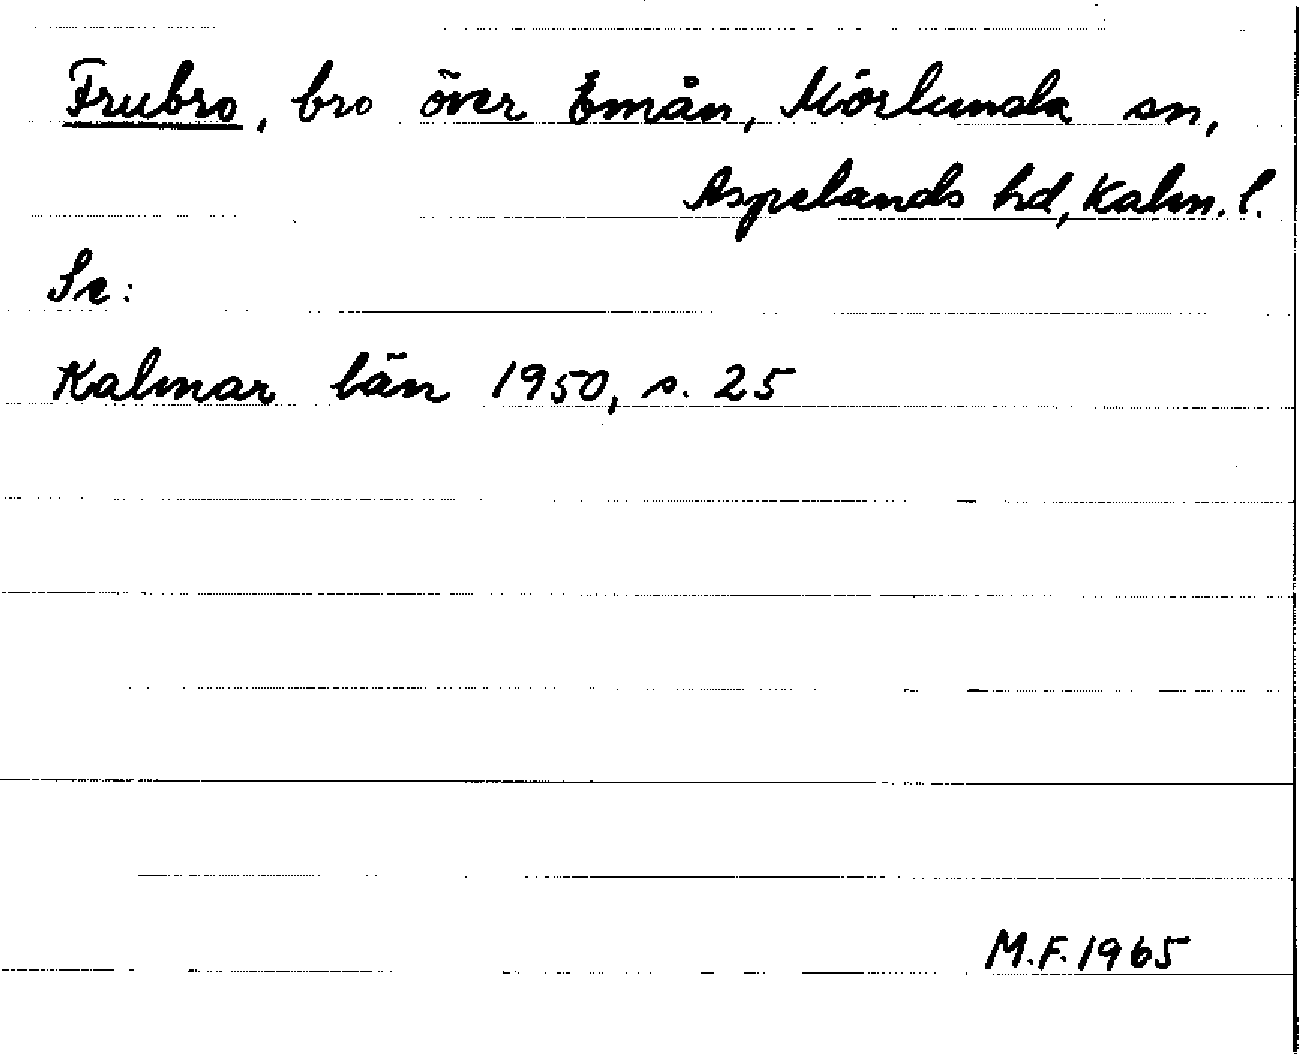 Frubro, bro över Emån, Mörlunda sn,
Aspelands hd, Kalm. l.
Se:
Kalmar län 1950, s. 25
M.F. 1965